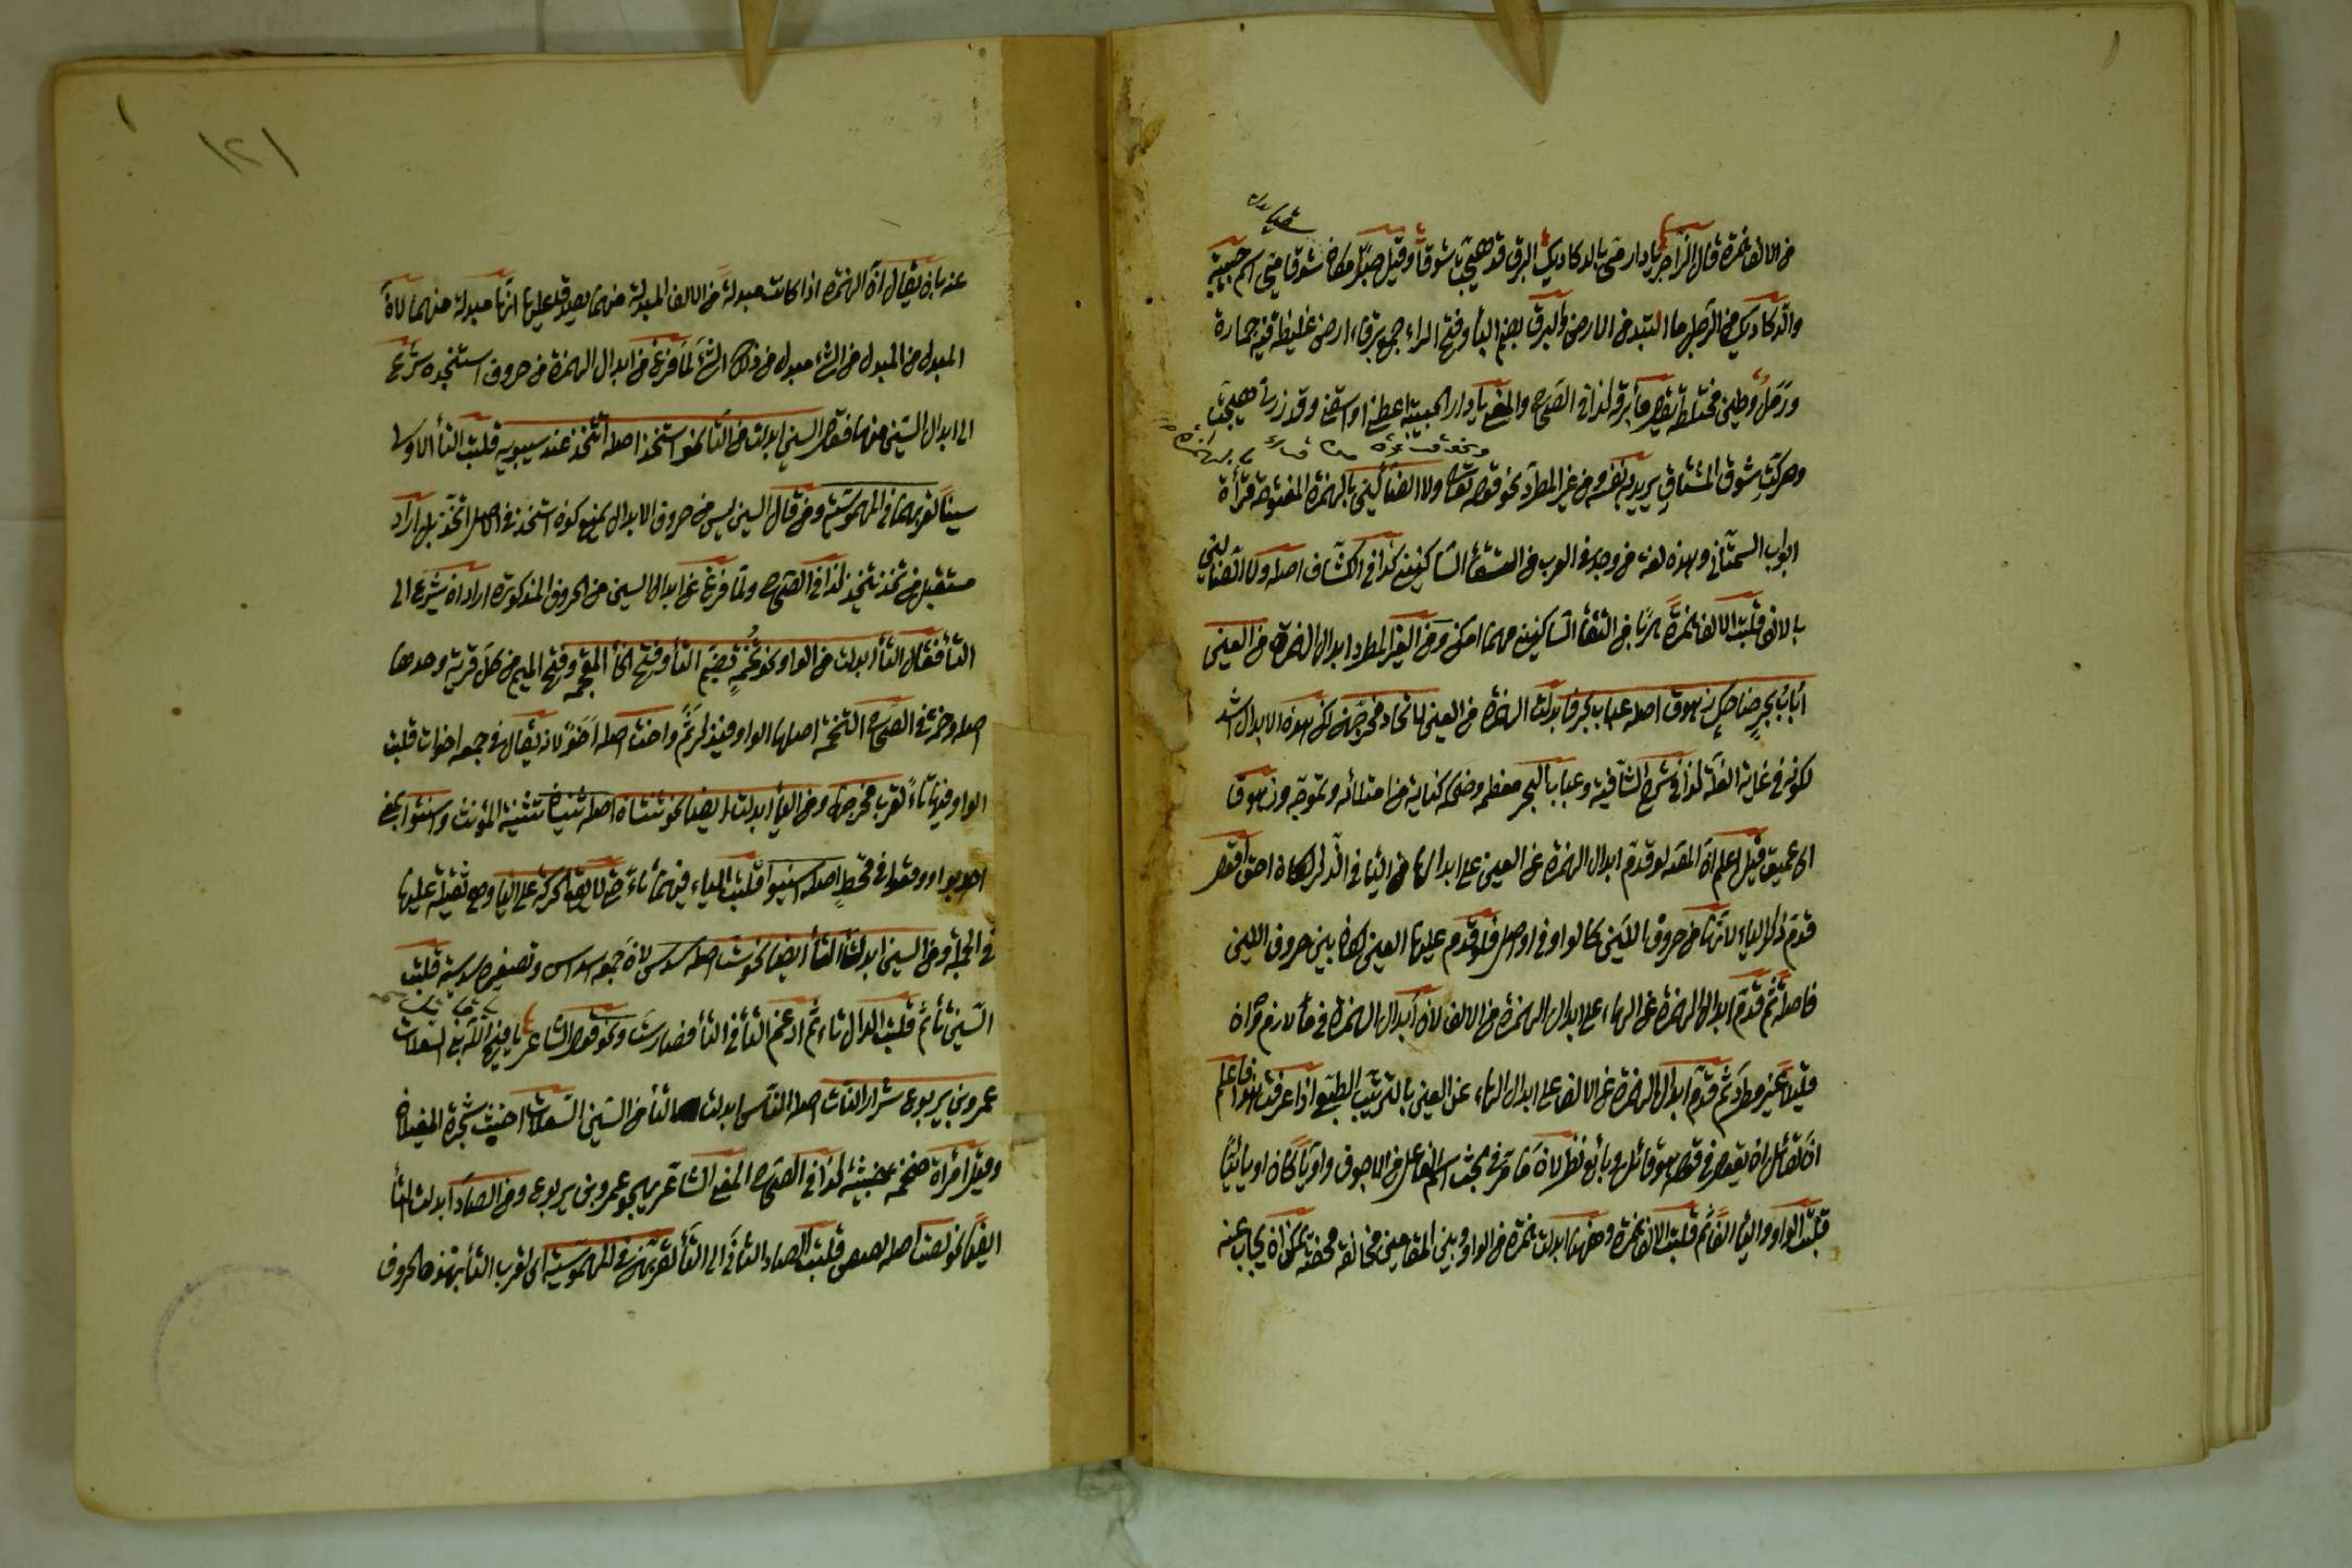 من الالف همزة قال الراجز يا دار مىّ بالدكاديك البرق قد هيجت شوقا وقيل صبرا مكان شوقا مى اسم حبيبة
والدكاديك من الرمل ما التبد من الارض والبرق بضم الباء وفتح الراء جمع برقاء ارض غليظة فيه حجارة
ورمل وطين مختلطة كذا فى الصحاح والمعنى يا دار الحبيبة
وحركت شوق المشتاق يريد به نفسه ومن غير المطرد نحو قوله تعالى ولا الضألين بالهمزة المفتوحة قرأة
ايوب السختانى وهذه لغة من وجد فى الهرب من التقاء الساكنين كذا فى الكشاف اصله ولا الضالين
بالالف قلبت الالف همزة هربا من التقاء الساكنين مهما امكن ومن الغير المطرد ابدال الهمزة من العين
اباب بحر ضاحك زهوق اصله عباب بحر فابدلت الهمزة من العين لاتحاد مخرجهن لكن هذه الابدال اشذ
لكونه فى غاية القلة كذا فى شرح الشافية وعباب البحر معظمه وضحكه كناية من امتلائه وتموجه وزهوقا
اى عميق قيل اعلم ان المص لو قدم ابدال الهمزة عن العين على ابدالها من الياء فى الذكر لكان احق
قدم ذكر الياء لانها من حروف اللين كالواو فى اواصل فلو قدم عليها العين لكان بين حروف اللين
فاصلة ثم قدم ابدال الهمزة عن الهاء على ابدال الهمزة من الالف لان ابدال الهمزة فى ماء لازم وان
قليلا غير مطرد ثم قدم ابدال الهمزة عن الالف على ابدال الهاء عن العين بالترتيب الطبيعى اذا عرفت هذا فاعلم
ان لقائل ان يقول فى قوله هو قائل وبائع نظر لان ما مر فى بحث اسم الفاعل من الاجوف واويا كان او يائيا
قلبت الواو والياء الفا ثم قلبت الالف همزة وههنا ابدلت همزة من الواو وبين المقامين مخالفة محضة يمكن ان يجاب عنه
١٢١
عنه بان يقال ان الهمزة اذا كانت مبدلة من الالف المبدلة منهما يصدق عليها انها مبدلة منهما لان
المبدل من المبدل من الشئ مبدل من ذلك الشئ لما فرغ من ابدال الهمزة من حروف استنجده شرع
الى ابدال السين منها فقال السين ابدلت من التاء نحو استخذ اصله اتخذ عند سيبويه قلبت التاء الاولى
سينا لقربهما فى المهموسية ومن قال السين ليس من حروف الابدال يمنع كون استخذ فى الاصل اتخذ بل اراد
مستقبل من تخذ يتخذ كذا فى الصحاح ولما فرغ عن ابدال السين من الحروف المذكورة اراد ان يشرع الى
التاء فقال التاء ابدلت من الواو نحو تخمة بضم التاء وفتح الخاء المعجمة وفتح الميم من كل قرية وحدها
اصله وخمة فى الصحاح التخمة اصلها الواو فيذكر ثم واخت اصله اخو لانه يقال فى جمعه اخوات قلبت
الواو فيها تاء لقرب مخرجهما ومن الياء ابدلت ايضا نحو ثنتان اصله ثنيان تثنية المؤنث واسنتوا بمعنى
اجدبوا ووقعوا فى قحط اصله اسنيوا قلبت الياء فيهما تاء حتى لا يقع الحركة على الياء وهى ثقيلة عليها
فى الجملة ومن السين ابدلت التاء ايضا نحو ست اصله سدس لان جمعه اسداس وتصغيره سديسة قلبت
السين تاء ثم قلبت الدال تاء ثم ادغم التاء فى التاء فصار ست ونحو قول الشاعر يا قبح الله بنى السعلات
عمرو بن يربوع شرار النات اصله الناس ابدلت التاء من السين السعلات اخبث شجرة الغيلان
وقيل امرأة ضخمة خبيثة كذا فى الصحاح المعنى الشاعر يهجو عمرو بن يربوع ومن الصاد ابدلت التاء
ايضا نحو لصت اصله لصص قلبت الصاد الثانى الى التاء لقربهن فى المهموسية اى لقرب التاء بهذه الحروف